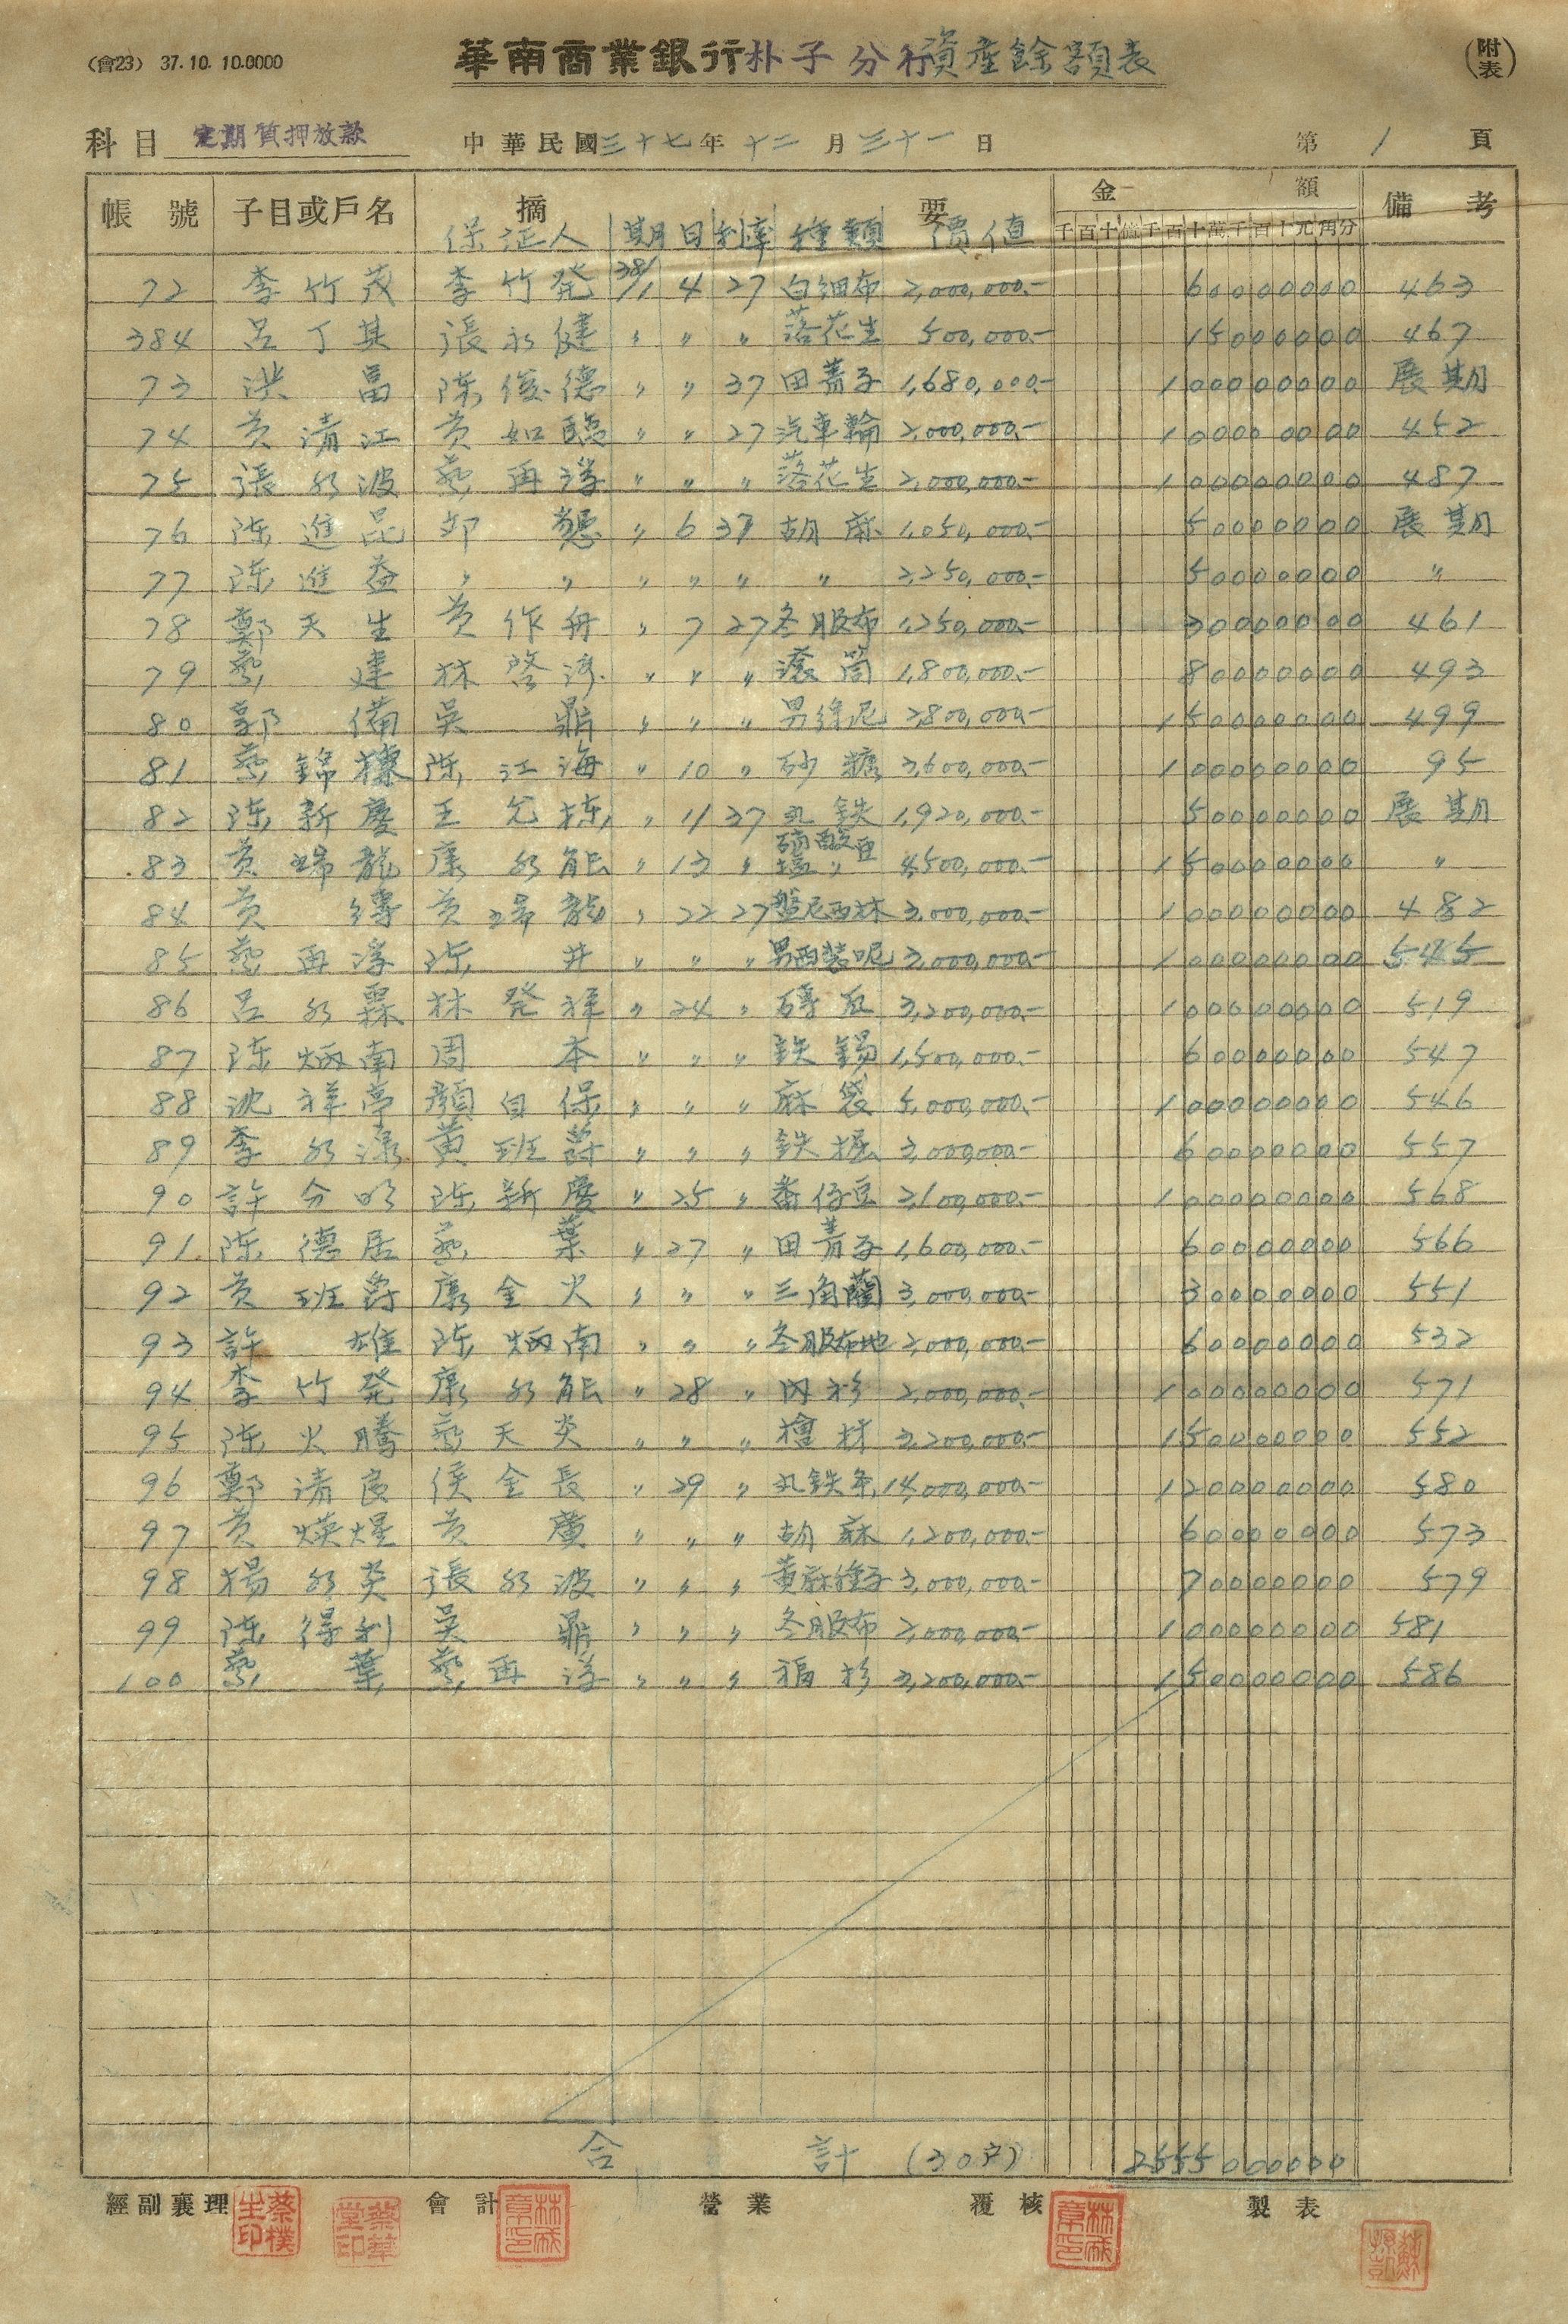 (會23) 37.10.10.0000
華南商業銀行朴子分行資產餘額表
(附表)
科目 定期質押放款 中華民國三十七年十二月三十一日 第1頁
帳號 子目或戶名 摘要 金額 備考
保証人 期日 利率 種類 價值 千百十億千百十萬千百十元角分
72 李竹茂 李竹発 38/1 4 27 白細布 2,000,000.- 60000000 463
384 呂丁其 張永健 〃 〃 〃 落花生 500,000.- 15000000 467
73 洪富 陳俊德 〃 〃 37 田菁子 1,680,000.- 100000000 展期
74 黄清江 黄如臨 〃 〃 27 汽車輪 2,000,000.- 100000000 452
75 張水波 蔡再添 〃 〃 〃 落花生 2,000,000.- 100000000 487
76 陳進品 邱 〃 6 37 胡麻 1,050,000.- 50000000 展期
77 陳進益 〃 〃 〃 〃 〃 〃 2,250,000.- 50000000 〃
78 鄭天生 黄作舟 〃 7 27 冬服布 1,250,000.- 30000000 461
79 蔡建 林啓 〃 〃 〃 滾筒 1,800,000.- 80000000 493
80 郭備 吳鼎 〃 〃 〃 男 2,800,000.- 150000000 499
81 蔡錦 陳江海 〃 10 〃 砂糖 3,600,000.- 100000000 95
82 陳新慶 王允棟 〃 11 37 丸鉄 1,920,000.- 50000000 展期
83 黄瑞龍 康水能 〃 13 〃 硝酸 塩〃 4,500,000.- 150000000 〃
84 黄 黄瑞龍 〃 22 27 盤尼西林 3,000,000.- 100000000 482
85 蔡再添 陳井 〃 〃 〃 男西裝呢 3,000,000.- 100000000 545
86 呂水霖 林発祥 〃 24 〃 磚瓦 3,200,000.- 100000000 519
87 陳炳南 周本 〃 〃 〃 鉄錫 1,500,000.- 60000000 547
88 沈祥亭 顏自保 〃 〃 〃 麻袋 5,000,000.- 100000000 546
89 李水 黄班爵 〃 〃 〃 鉄板 3,000,000.- 60000000 557
90 許分明 陳新慶 〃 25 〃 番仔豆 2,100,000.- 100000000 568
91. 陳德居 蔡葉 〃 27 〃 田菁子 1,600,000.- 60000000 566
92 黄班爵 康金火 〃 〃 〃 三角藺 3,000,000.- 30000000 551
93 許雄 陳炳南 〃 〃 〃 冬服布地 2,000,000.- 60000000 532
94 李竹発 康水能 〃 28 〃 内衫 2,000,000.- 100000000 571
95 陳火騰 蔡天炎 〃 〃 〃 檜材 3,200,000.- 150000000 552
96 鄭清良 侯金長 〃 29 〃 丸鉄条 14,000,000.- 120000000 580
97 黄煐煋 黄廣 〃 〃 〃 胡麻 1,200,000.- 60000000 573
98 楊水英 張水波 〃 〃 〃 黄麻種子 3,000,000.- 70000000 579
99 陳得利 吳鼎 〃 〃 〃 冬服布 2,000,000.- 100000000 581
100 蔡葉 蔡再添 〃 〃 〃 福杉 3,200,000.- 150000000 586
合計 (30户) 2555000000
經副襄理 會計 營業 覆核 製表
蔡樸生印 蔡華堂印